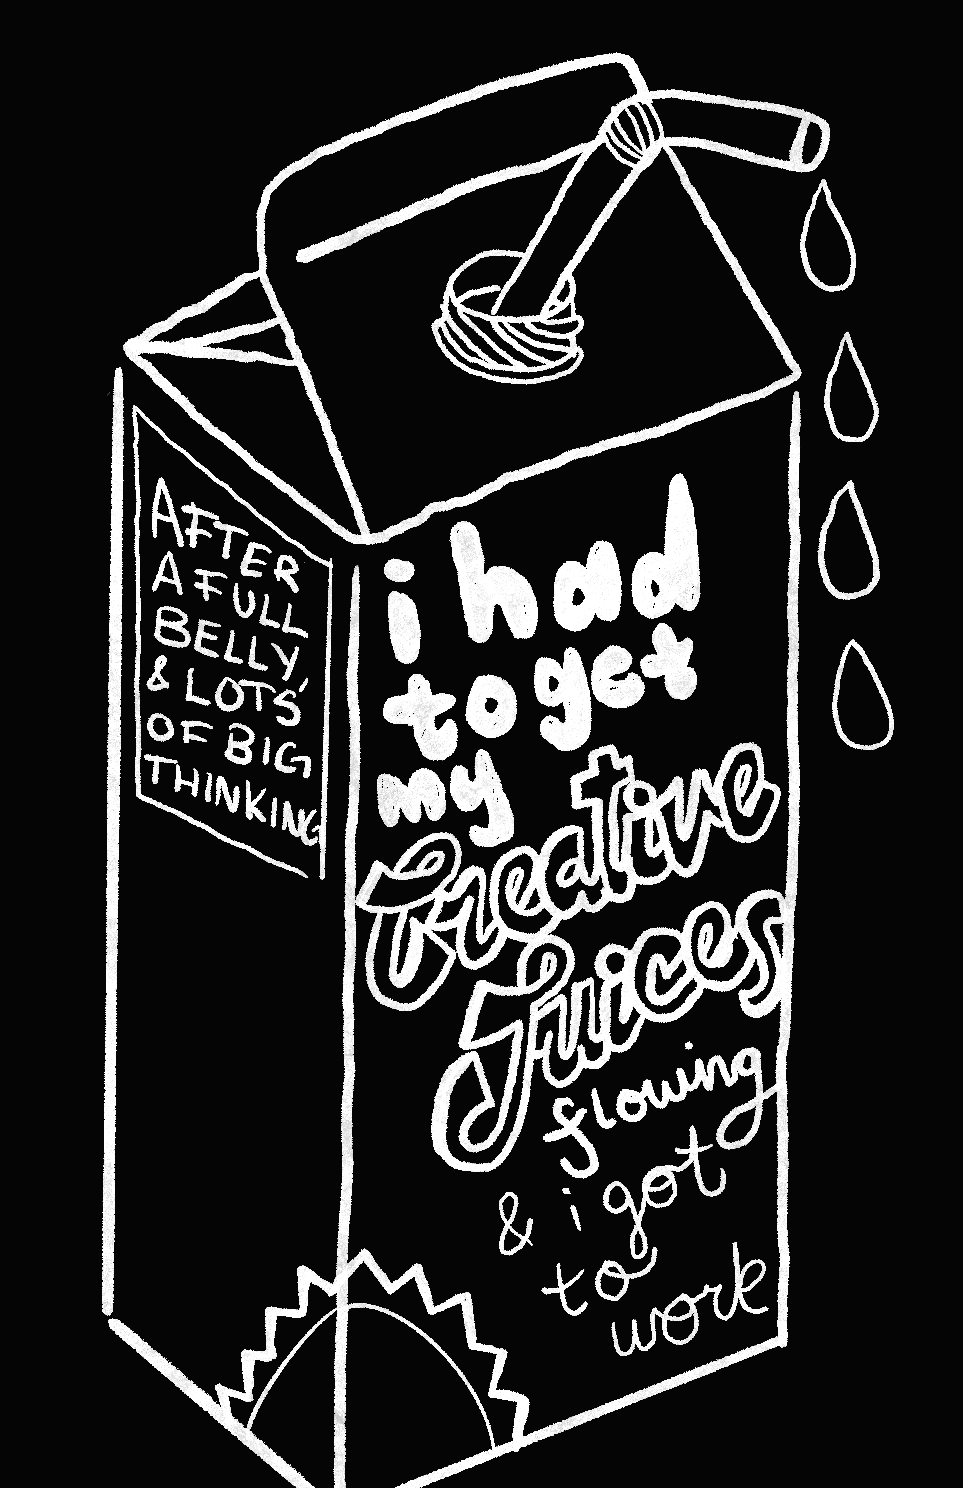 AFTER
A FULL
BELLY,
& LOTS
OF BIG
THINKING
i had
to get
my
Creative
Juices
flowing
& i got
to
work